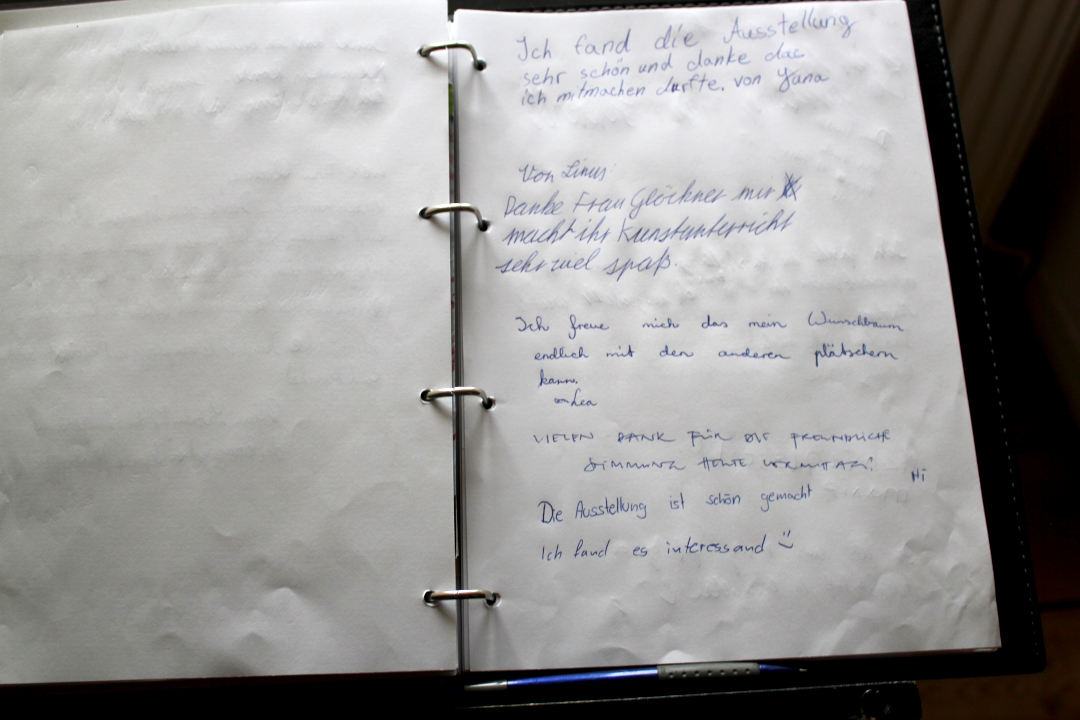 Ich fand die Ausstellung
sehr schön und danke das
ich mitmachen durfte. von Yuna
Von Linus:
Danke Frau Glöckner mir
macht ihr Kunstunterricht
sehr viel spaß.
Ich freue mich das mein Wunschbaum
endlich mit den anderen plätschern
kann.
von Lea
VIELEN DANK FÜR DIE FREUNDLICHE
STIMMUNG HEUTE VORMITTAG!
Hi
Die Ausstellung ist schön gemacht
Ich fand es interessand